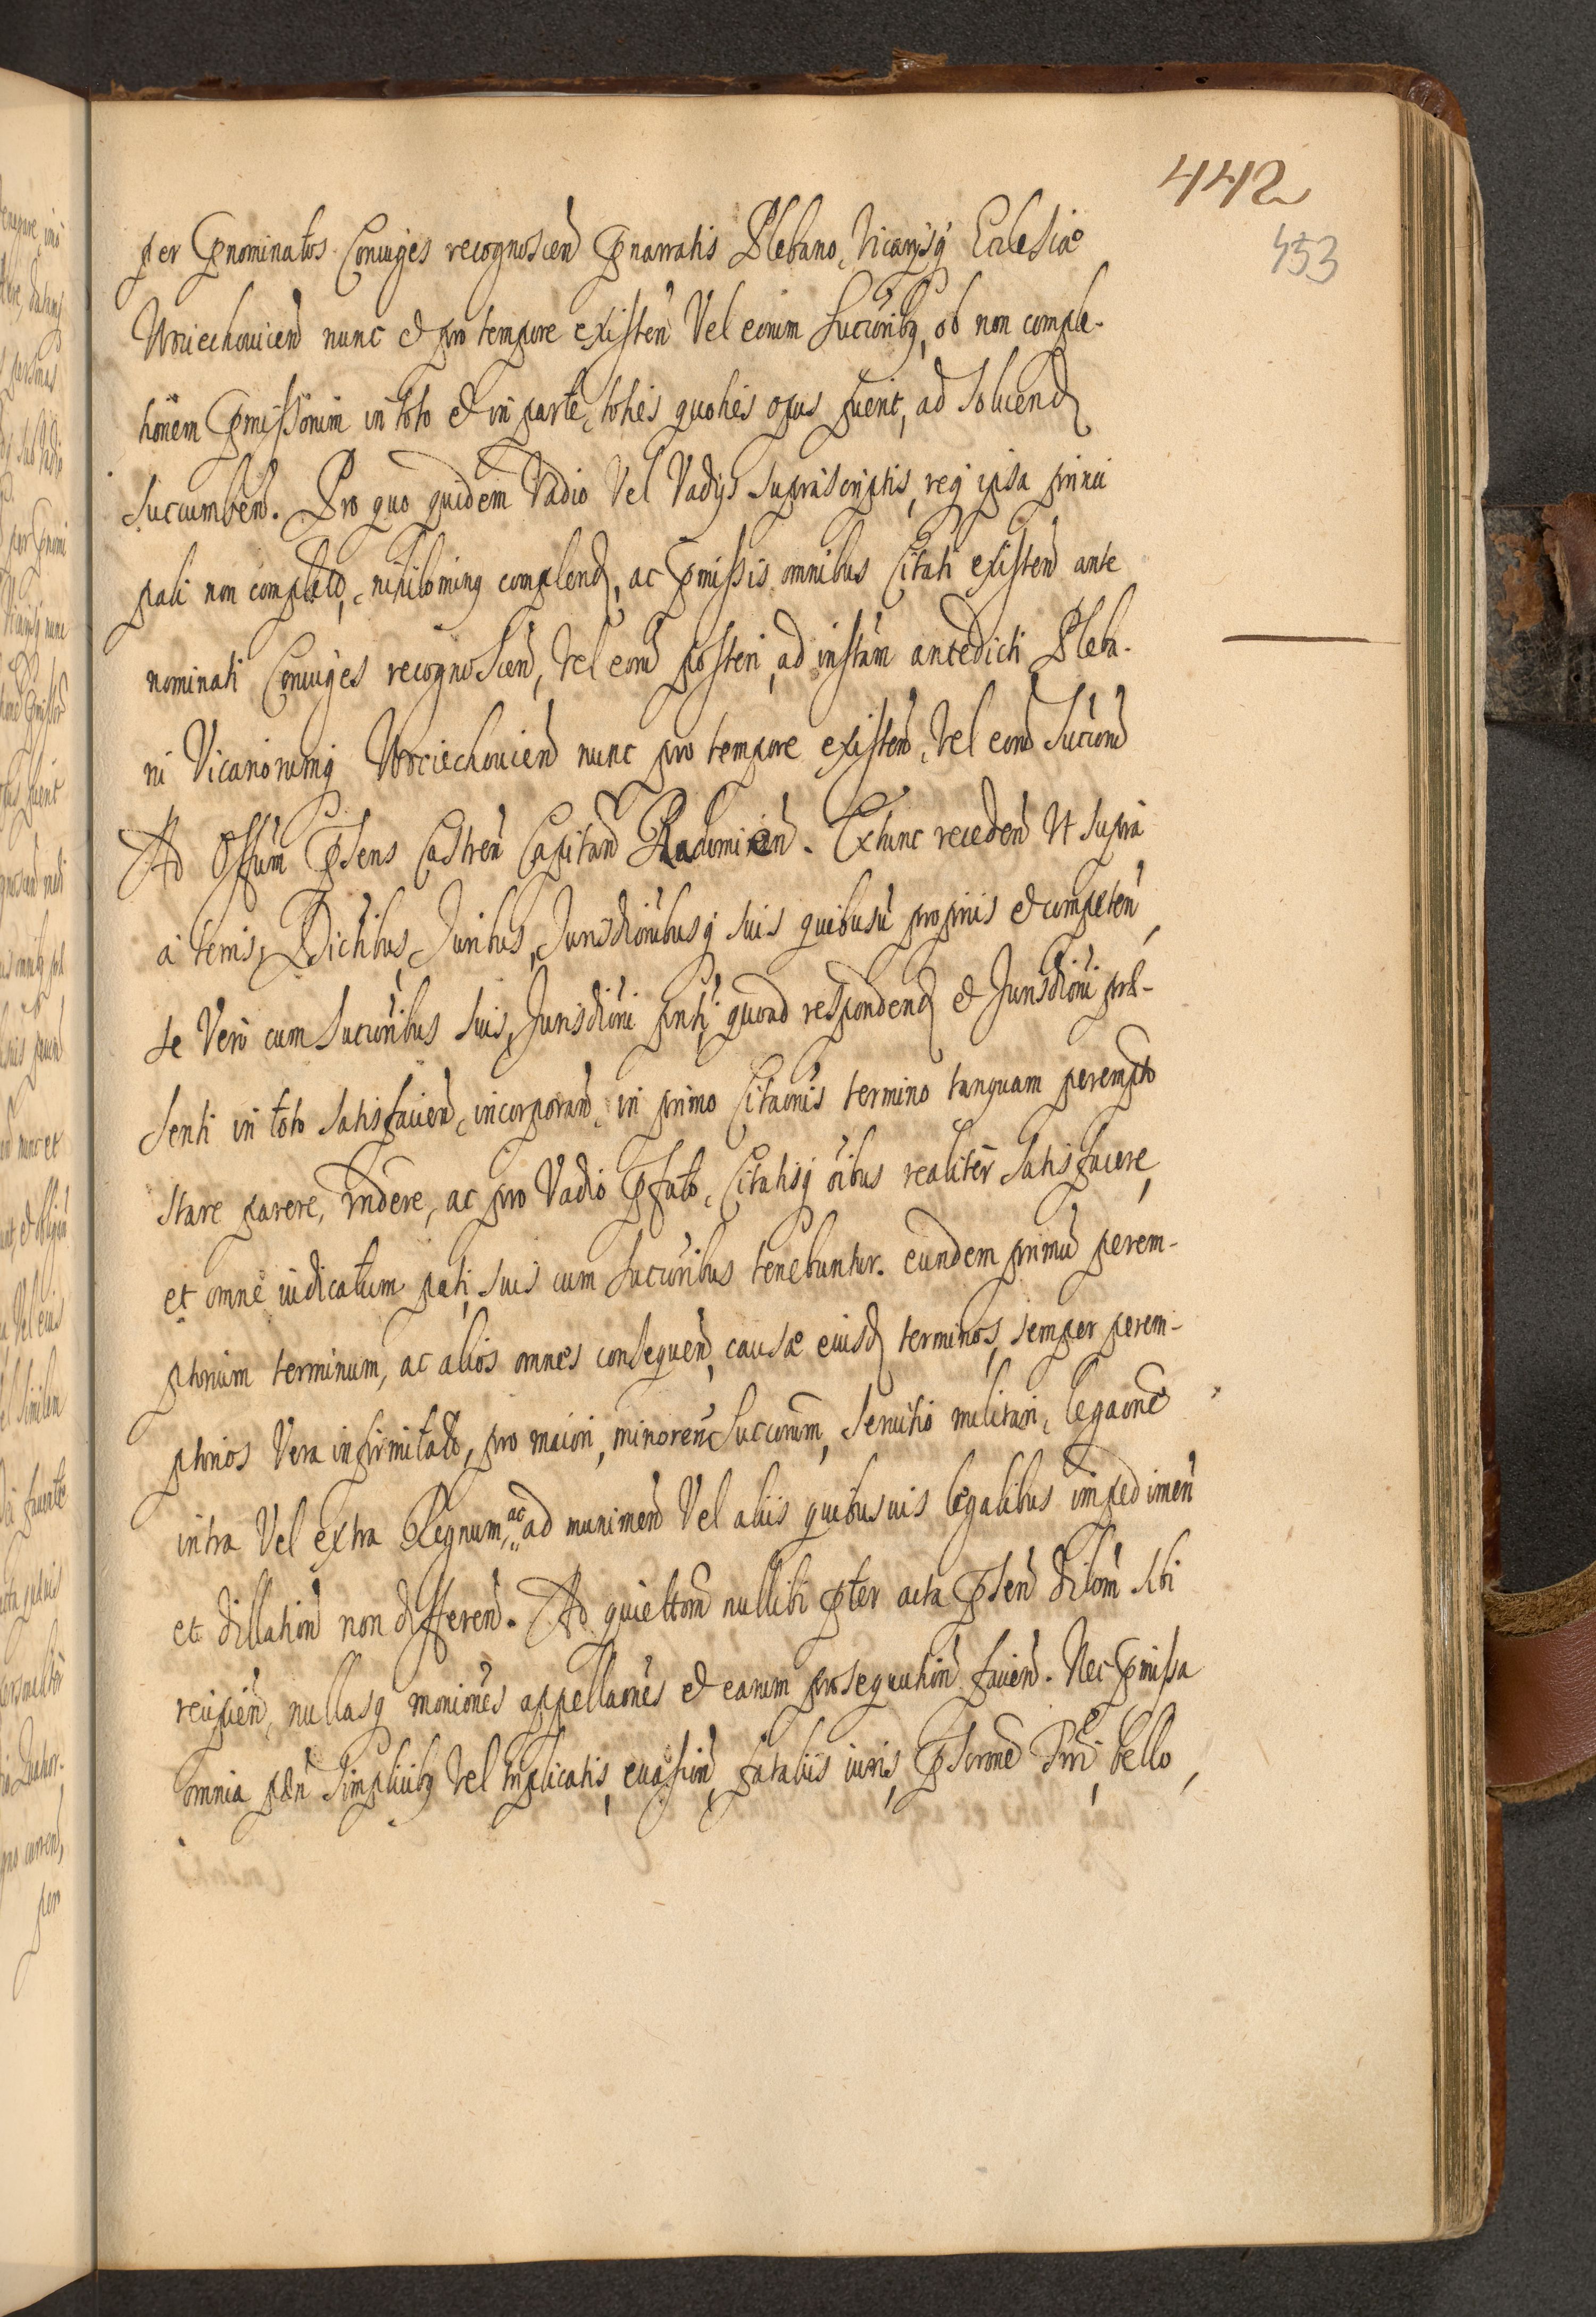 442
453
per Pnominatos Coniuges recognoscen̄ Pnarratis Plebano, Vicarijsq̨ Ecclesiae
Wociechouicen̄ nunc et pro tempore existen̄ Vel eorum Succrībq̨, ob non comple-
tionem Pmissorum in toto et in parte, toties quoties opus fuerit, ad soluend
succumben̄. Pro quo quidem Vadio Vel Vadijs suprascriptis, req̨ ipsa princi
pali non completa, nihilominq̨ complend, ac Pmissis omnibus Citati existen̄ ante
nominati Coniuges recognoscen̄, Vel eorū posteri, ad instām antedicti Pleba-
ni Vicariorumq̨ Wociechouicen̄ nunc pro tempore existen̄, Vel eorū Succrorū
Ad Offūm Psens Castren̄ Capitan̄ Radomien̄. Extunc receden̄ Ut supra
à terris, Districtibus, Juribus, Jurisdōnibusq̨ suis quibusū proprijs et competen̄,
se Vero cum Succrōibus suis, Jurisdōni pnti, quoad respondend et Jurisdōni prē-
senti in toto satisfacien̄, incorporan̄, in primo Citaōnis termino tanquam perempto
stare parere, rn̄dere, ac pro Vadio Pfato, Citatisq̨ ōibus realiter satisfacere,
et omne iudicatum pati, suis cum Succrōibus tenebuntur. eundem primū perem-
ptorium terminum, ac alios omnes consequen̄, causae eiusd terminos, semper perem-
ptorios Vera infirmitate, pro maiori, minoren̄ Succorum, seruitio militari, legaōne
intra Vel extra Regnum, ac ad munimen̄ Vel aliis quibusuis legalibus impedimen̄
et dillation̄ non differen̄. Ad quiettōm nullibi pter acta Psen̄ dilōm sibi
recipien̄, nullasq̨ moniōnes appellaōnes et earum prosequutiōn facien̄. Nec Pmissa
omnia paen̄ simplicibq̨ Vel triplicatis, euasion̄, fatalijs iuris, Pscrōne Trri, bello,